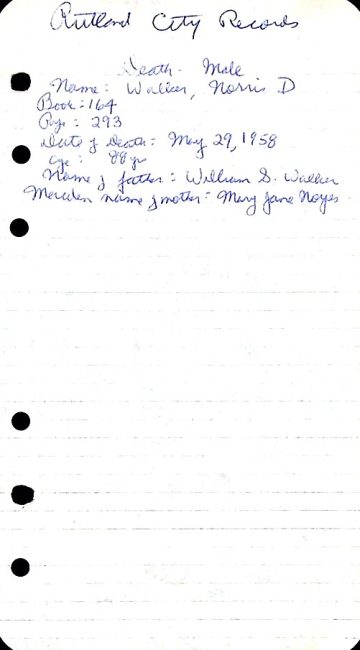 Rutland City Records
Death. Male
Name: Walker, Norris D
Book: 164
Page: 293
Date of Death: May 29, 1958
age: 88 yr
Name of father: William S. Walker
Maiden name of mother: Mary Jane Noyes